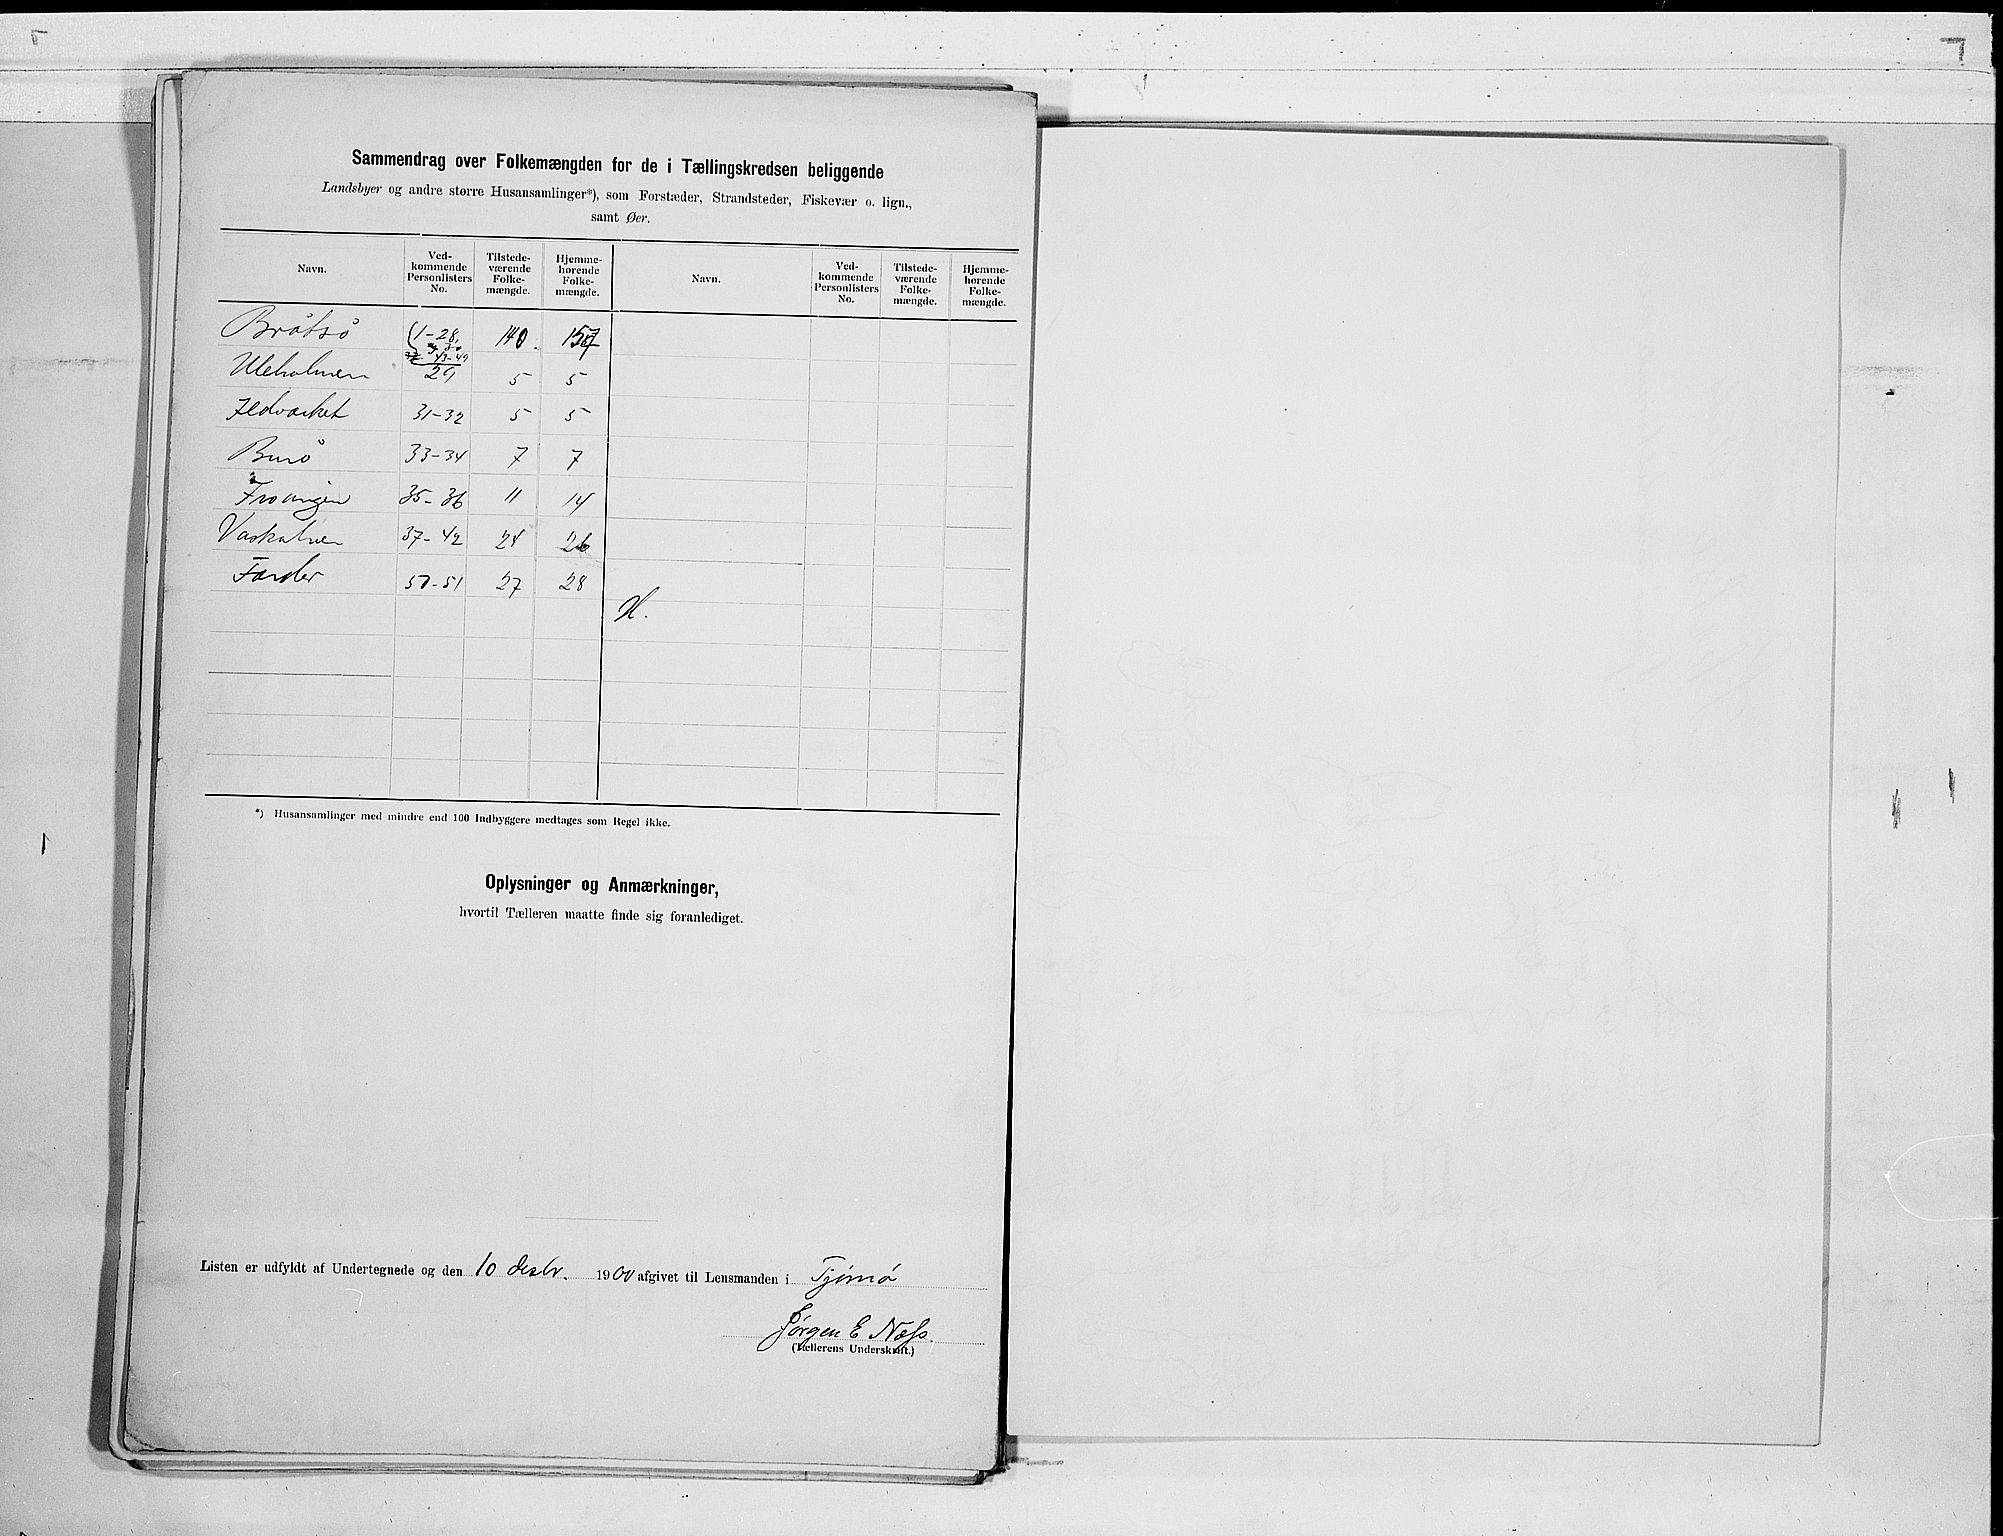 Sammendrag over Folkemængden for de i Tællingskredsen beliggende
Landsbyer og andre større Husansamlinger*), som Forstæder, Strandsteder, Fiskevær o. lign.,
samt Øer.
Navn. Ved-kommende Personlisters No. Tilstede-værende Folke-mængde. Hjemme-hørende Folke-mængde. Navn. Ved-kommende Personlisters No. Tilstede-værende Folke-mængde. Hjemme-hørende Folke-mængde.
Bråtsö 1-28, 43-49 140 157
Uleholmen 29 5 5
31-32 5 5
Burö 33-34 7 7
35-36 11 14
37-42 24 26
Færder 50-51 27 28
H.
*) Husansamlinger med mindre end 100 Indbyggere medtages som Regel ikke.
Oplysninger og Anmærkninger,
hvortil Tælleren maatte finde sig foranlediget.
Listen er udfyldt af Undertegnede og den 10 desbr. 1900 afgivet til Lensmanden i Tjömö
Jörgen E Næss.
(Tællerens Underskrift.)